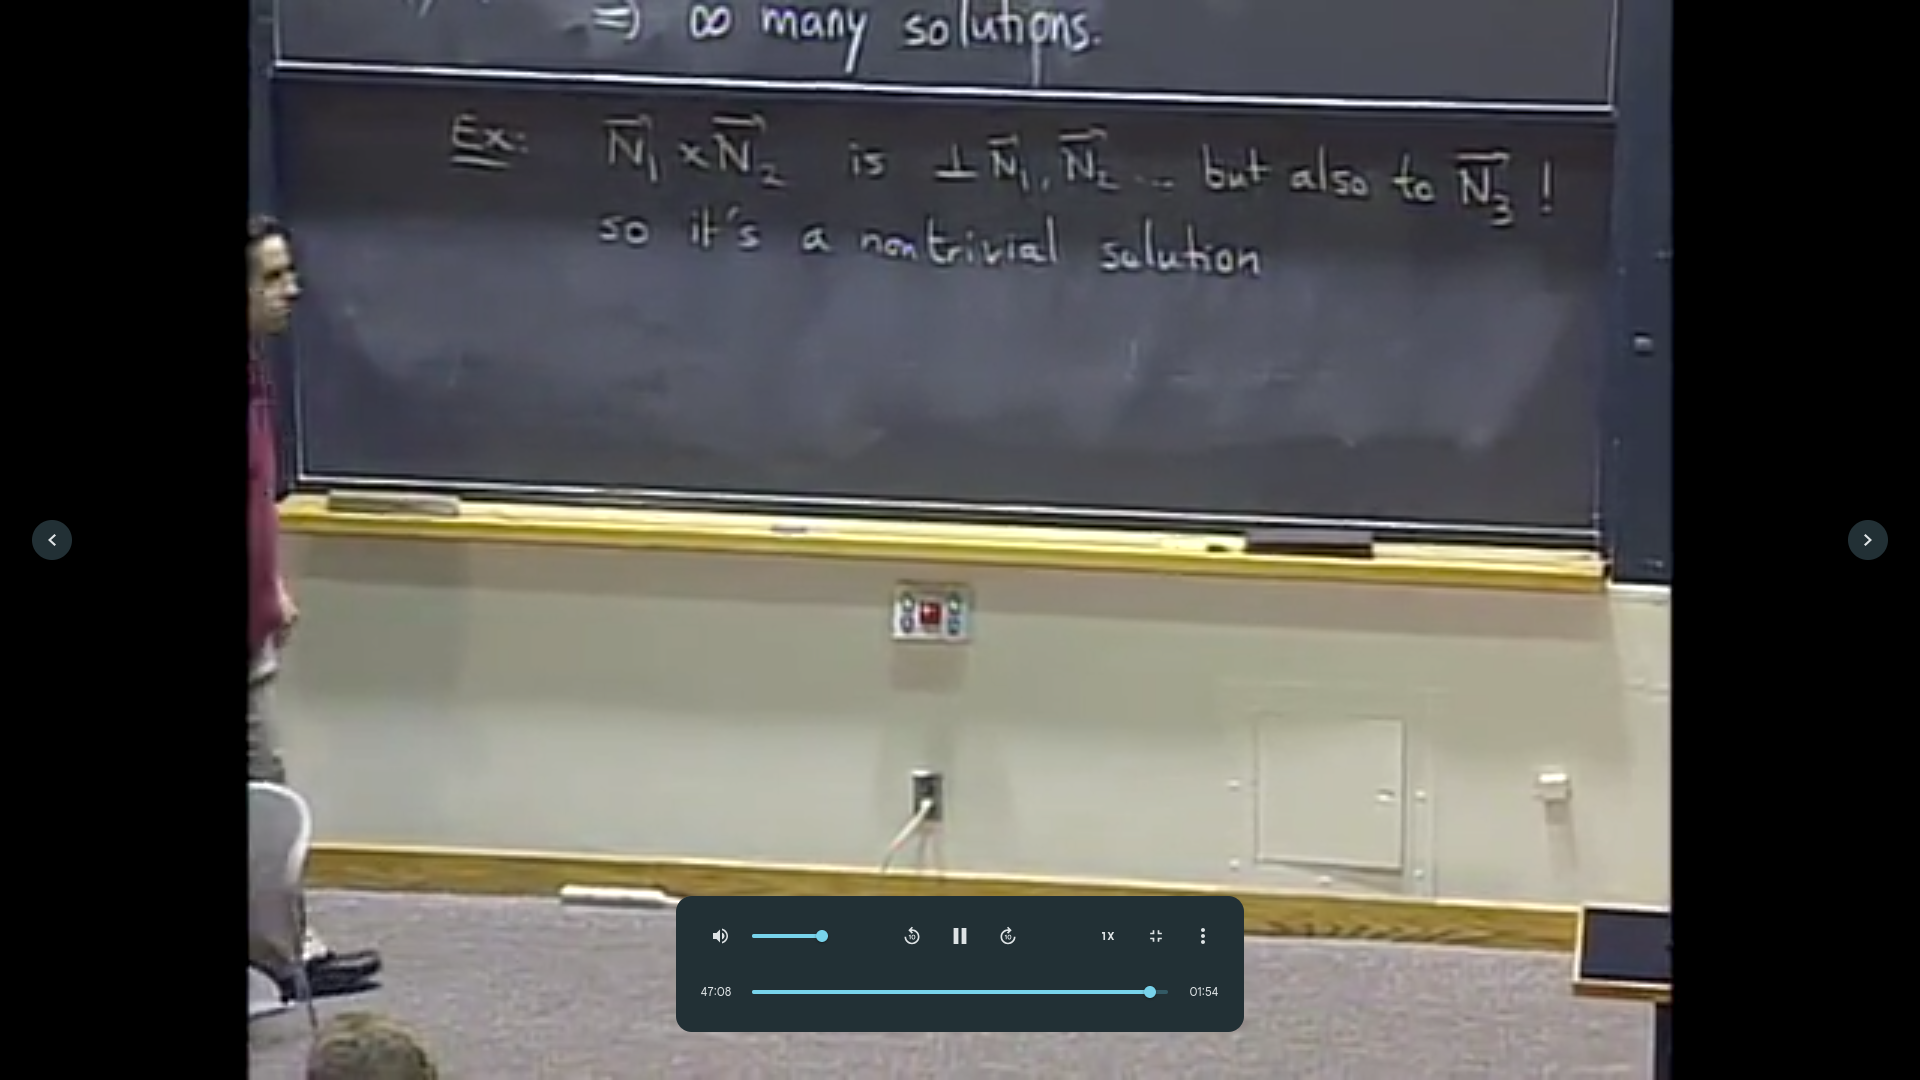 ⇒ ∞ many solutions.
Ex: N⃗₁ × N⃗₂ is ⊥ N⃗₁, N⃗₂ ... but also to N⃗₃ !
so it's a nontrivial solution
10 10 1X
47:08 01:54